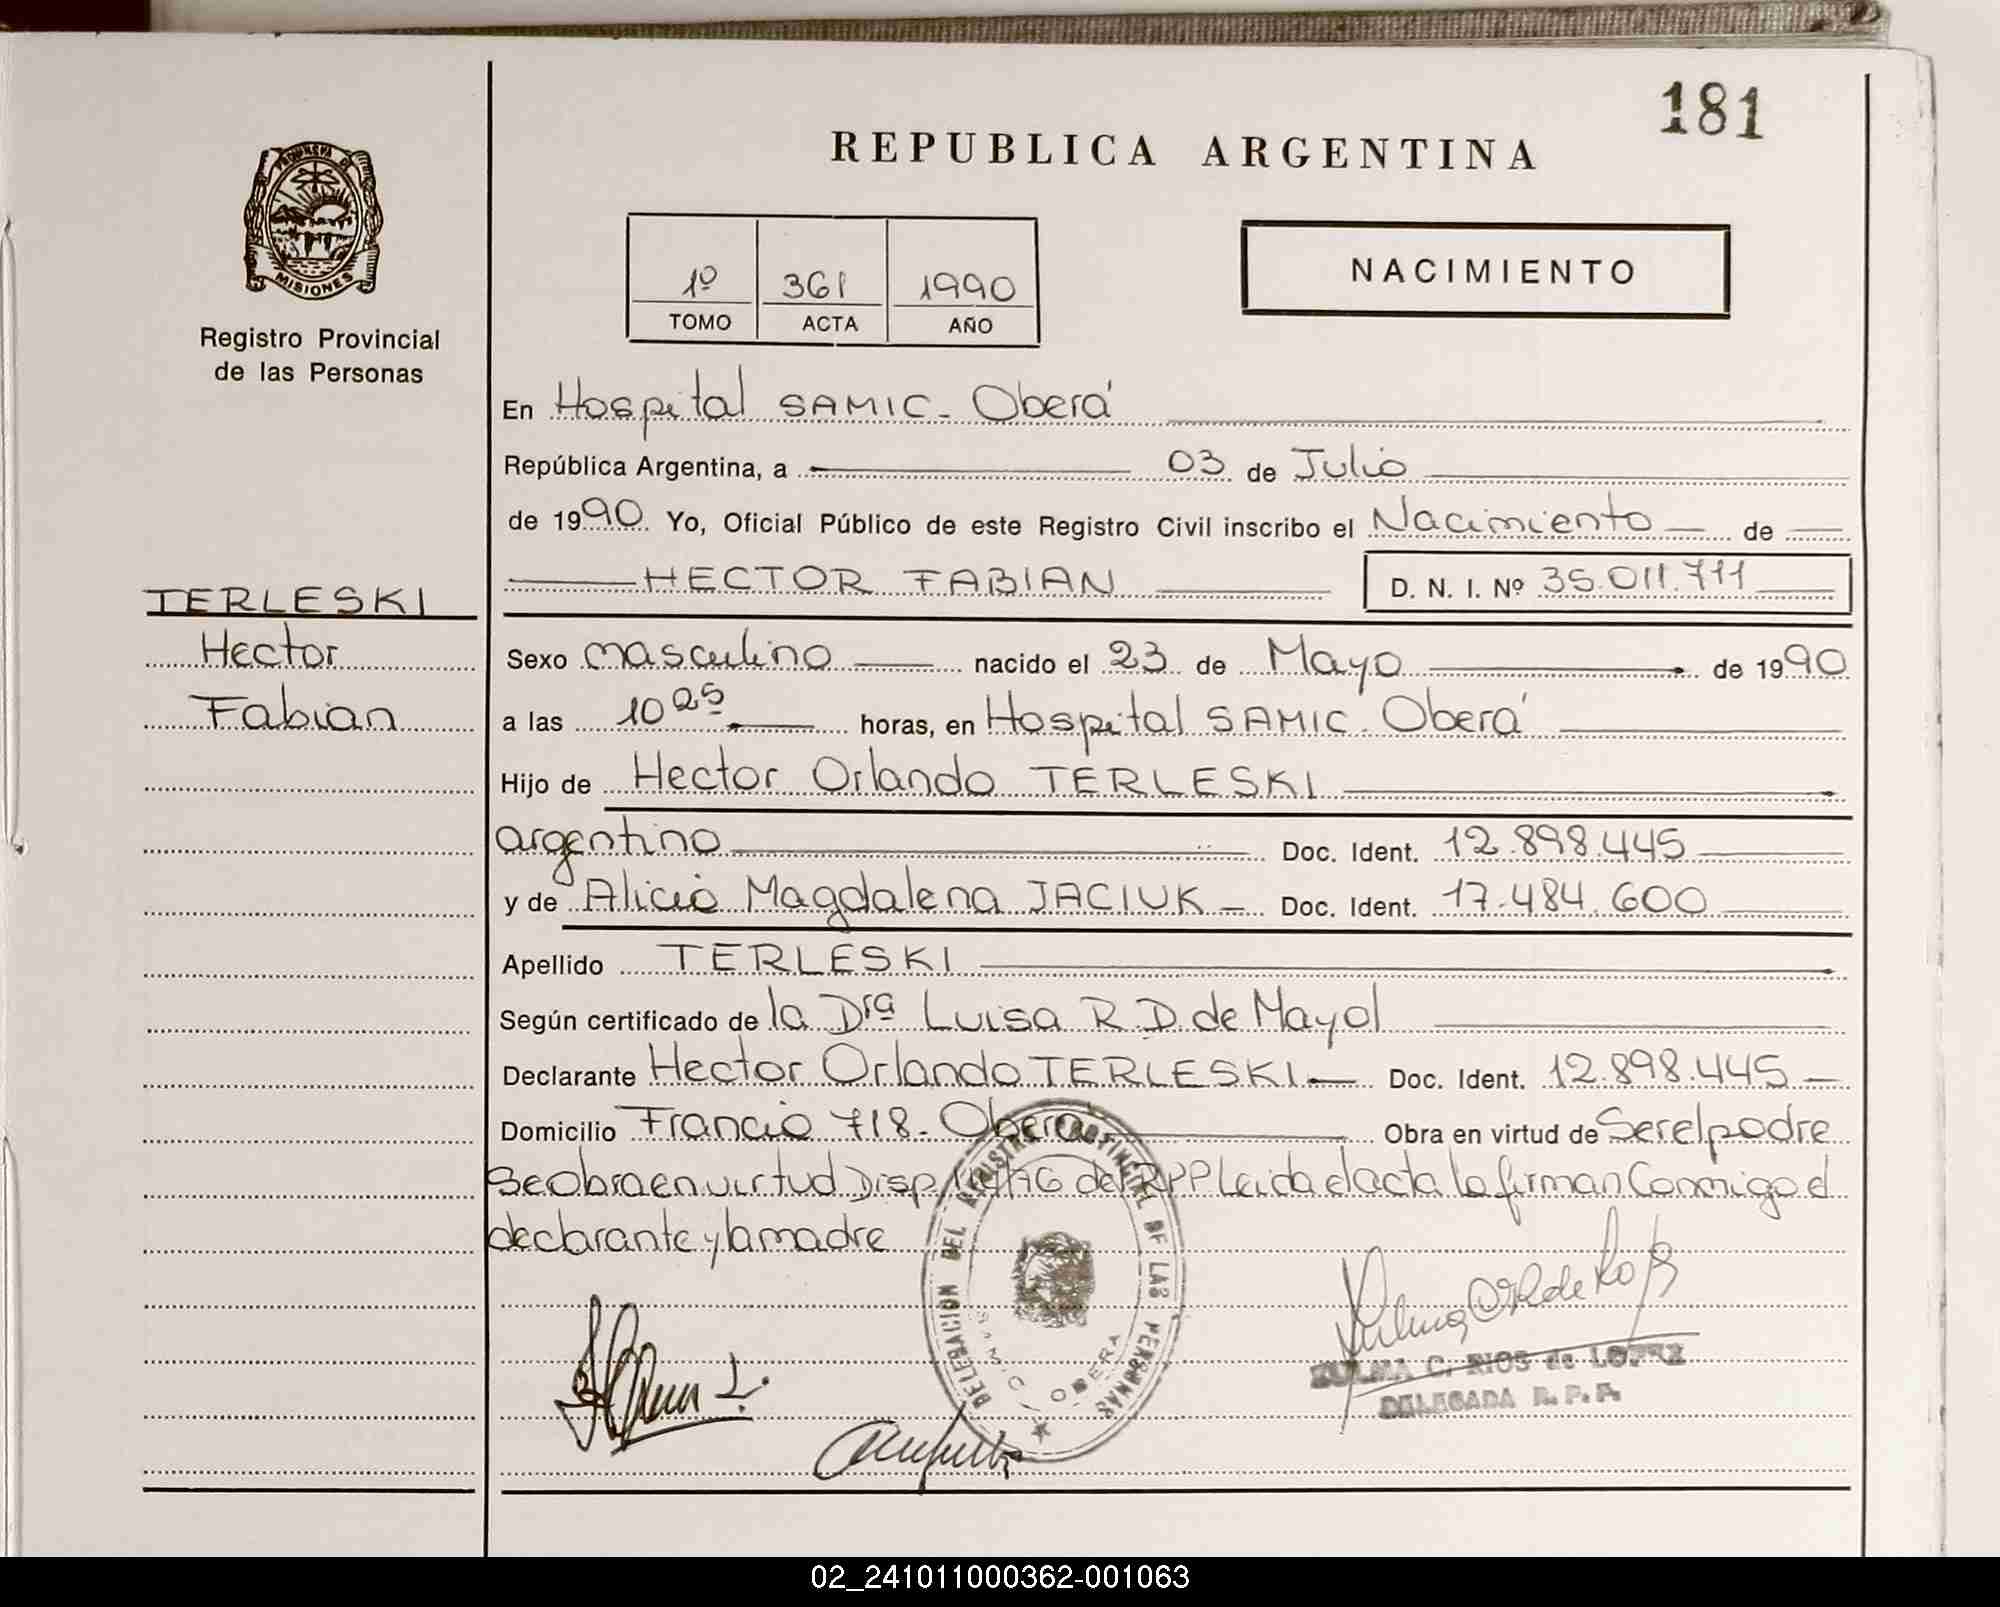 181
REPUBLICA ARGENTINA
PROVINCIA DE
MISIONES
Registro Provincial
de las Personas
1º 361 1990
TOMO ACTA AÑO
NACIMIENTO
En Hospital SAMIC - Oberá
República Argentina, a 03 de Julio
de 1990. Yo, Oficial Público de este Registro Civil inscribo el Nacimiento de
HECTOR FABIAN D. N. I. Nº 35.011.711
TERLESKI
Hector
Fabian
Sexo masculino nacido el 23 de Mayo de 1990
a las 10 25 horas, en Hospital SAMIC. Oberá
Hijo de Hector Orlando TERLESKI
argentino Doc. Ident. 12.898.445
y de Alicia Magdalena JACIUK - Doc. Ident. 17.484.600
Apellido TERLESKI
Según certificado de la Drª Luisa R.D. de Mayol
Declarante Hector Orlando TERLESKI - Doc. Ident. 12.898.445 -
Domicilio Francia 718 - Oberá Obra en virtud de Ser el padre
Se obra en virtud Disp. del RPP Leida el acta la firman Conmigo el
declarante y la madre
DELEGACION DEL REGISTRO PROVINCIAL DE LAS PERSONAS
SAMIC - OBERA
ZULMA C. RIOS de LOPEZ
DELEGADA R. P. P.
02_241011000362-001063